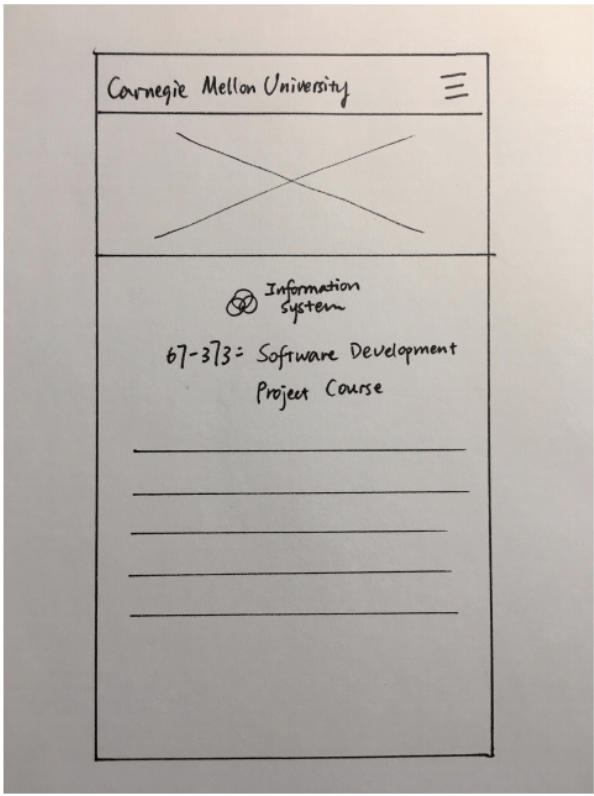 Carnegie Mellon University
Information
system
67-373: Software Development
Project Course